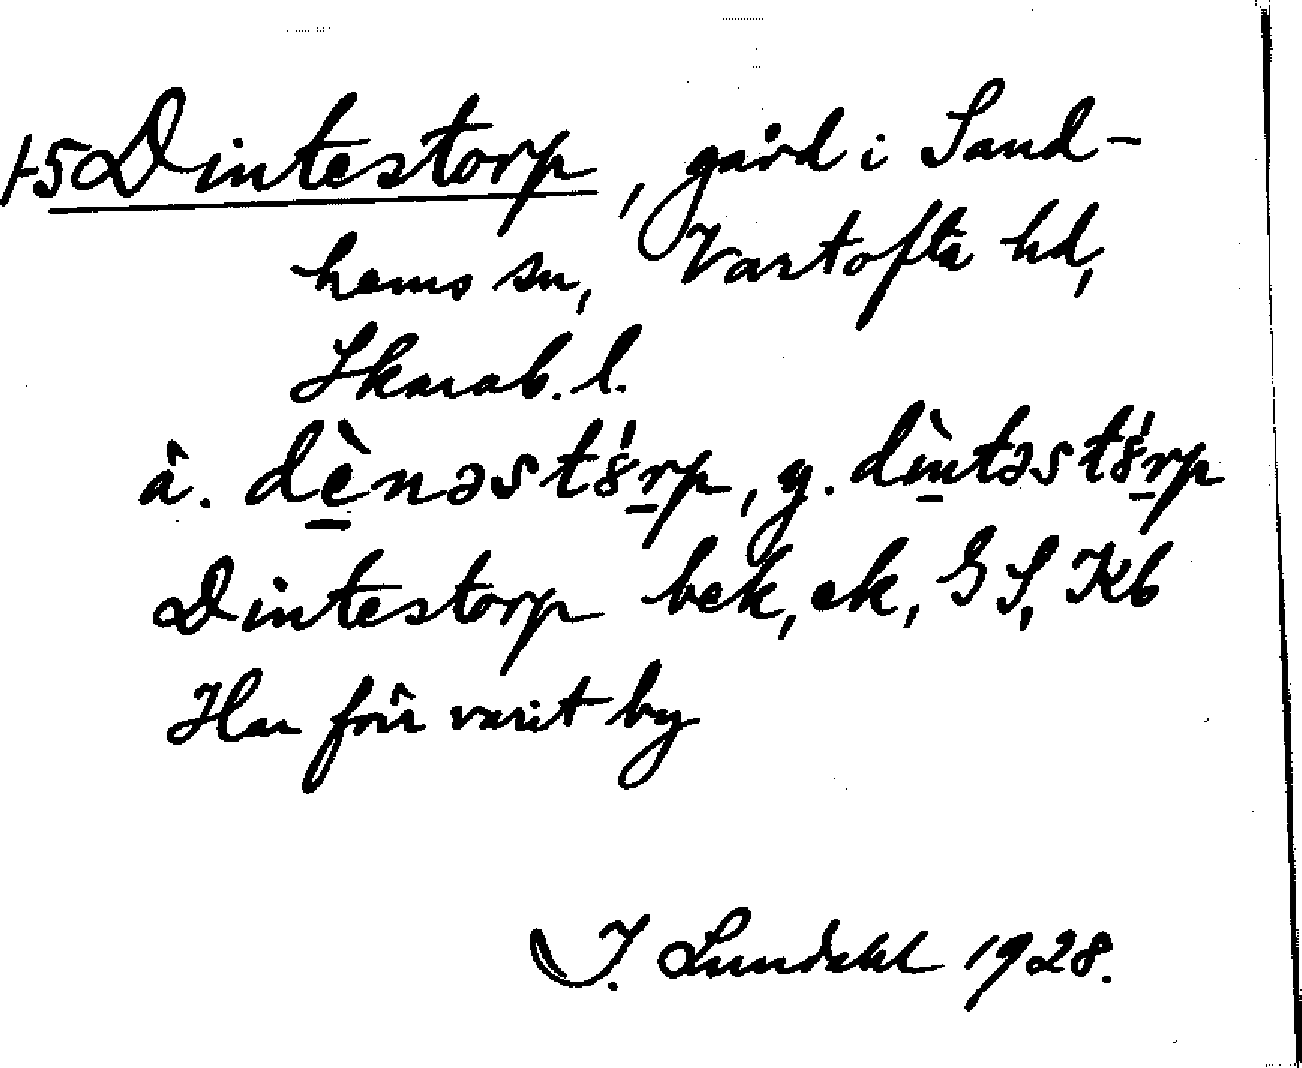 +5 Dintestorp, gård i Sand-
hems sn, Vartofta hd,
Skarab. l.
ä. dènəstȣ́rp, y. dìntəstȣ́rp
Dintestorp bek, ek, GS, Kb
Har förr varit by
I. Lundahl 1928.